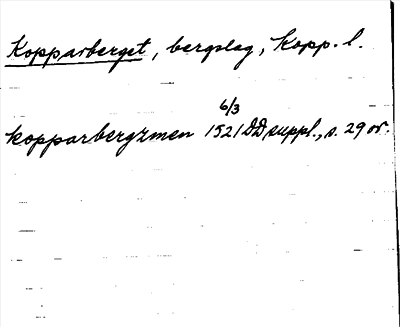 Kopparberget, bergslag, Kopp. l.
6/3
kopparbergzmen 1521 DD suppl., s. 29 or.